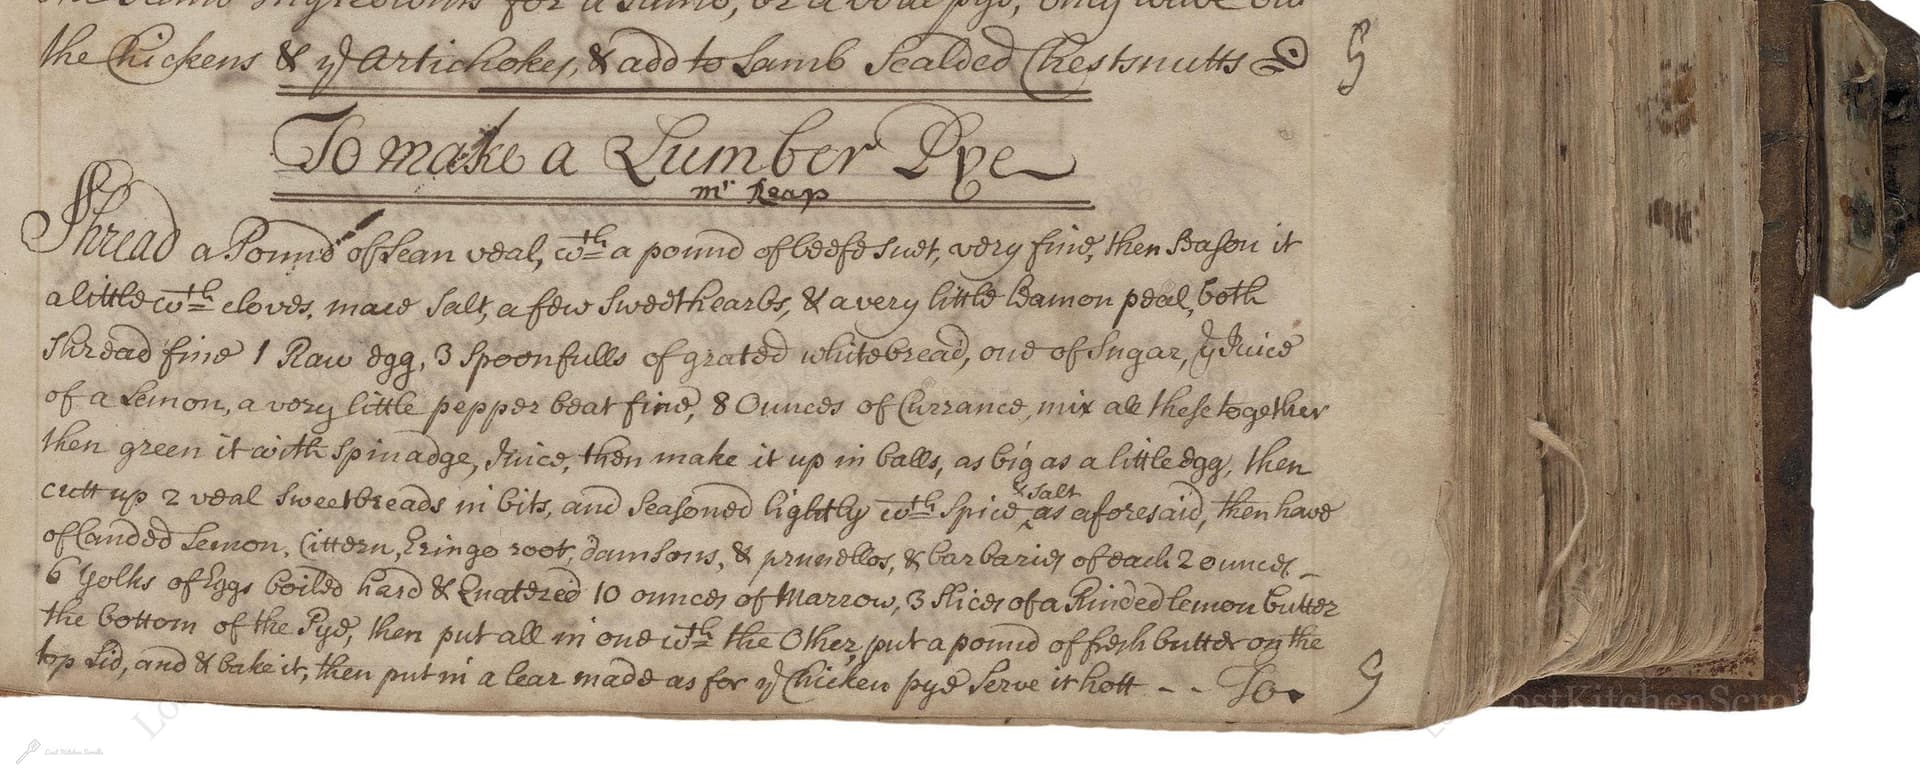 the same Ingredients for a Lamb, or a veal pye, only leave out
the Chickens & yͤ Artichokes, & add to Lamb Scalded Chestsnutts
To make a Lumber Pye
mʳ Reap
Shread a Pound of Lean veal, wᵗʰ a pound of beefe suet, very fine, then Sason it
a little wᵗʰ cloves, mace salt, a few sweethearbs, & a very little Lamon peal, both
shread fine 1 Raw egg, 3 spoonfulls of grated whitebread, one of Sugar, yͤ Juice
of a Lemon, a very little pepper beat fine, 8 Ounces of Currance, mix all these together
then green it with spinadge, Juice, then make it up in balls, as big as a little egg, then
cutt up 2 veal sweetbreads in bits, and seasoned lightly wᵗʰ spice, & salt as aforesaid, then have
of Canded Lemon, Cittern, Eringo root, damsons, & prunellos, & barbaries of each 2 ounces
6 Yolks of Eggs boiled hard & Quatered 10 ounces of Marrow, 3 slices of a Rinded lemon butter
the bottom of the Pye, then put all in one wᵗʰ the Other, put a pound of fresh butter on the
top Lid, and & bake it, then put in a lear made as for yͤ Chicken pye serve it hott - - To
LostKitchenScrol
Lost Kitchen Scrolls